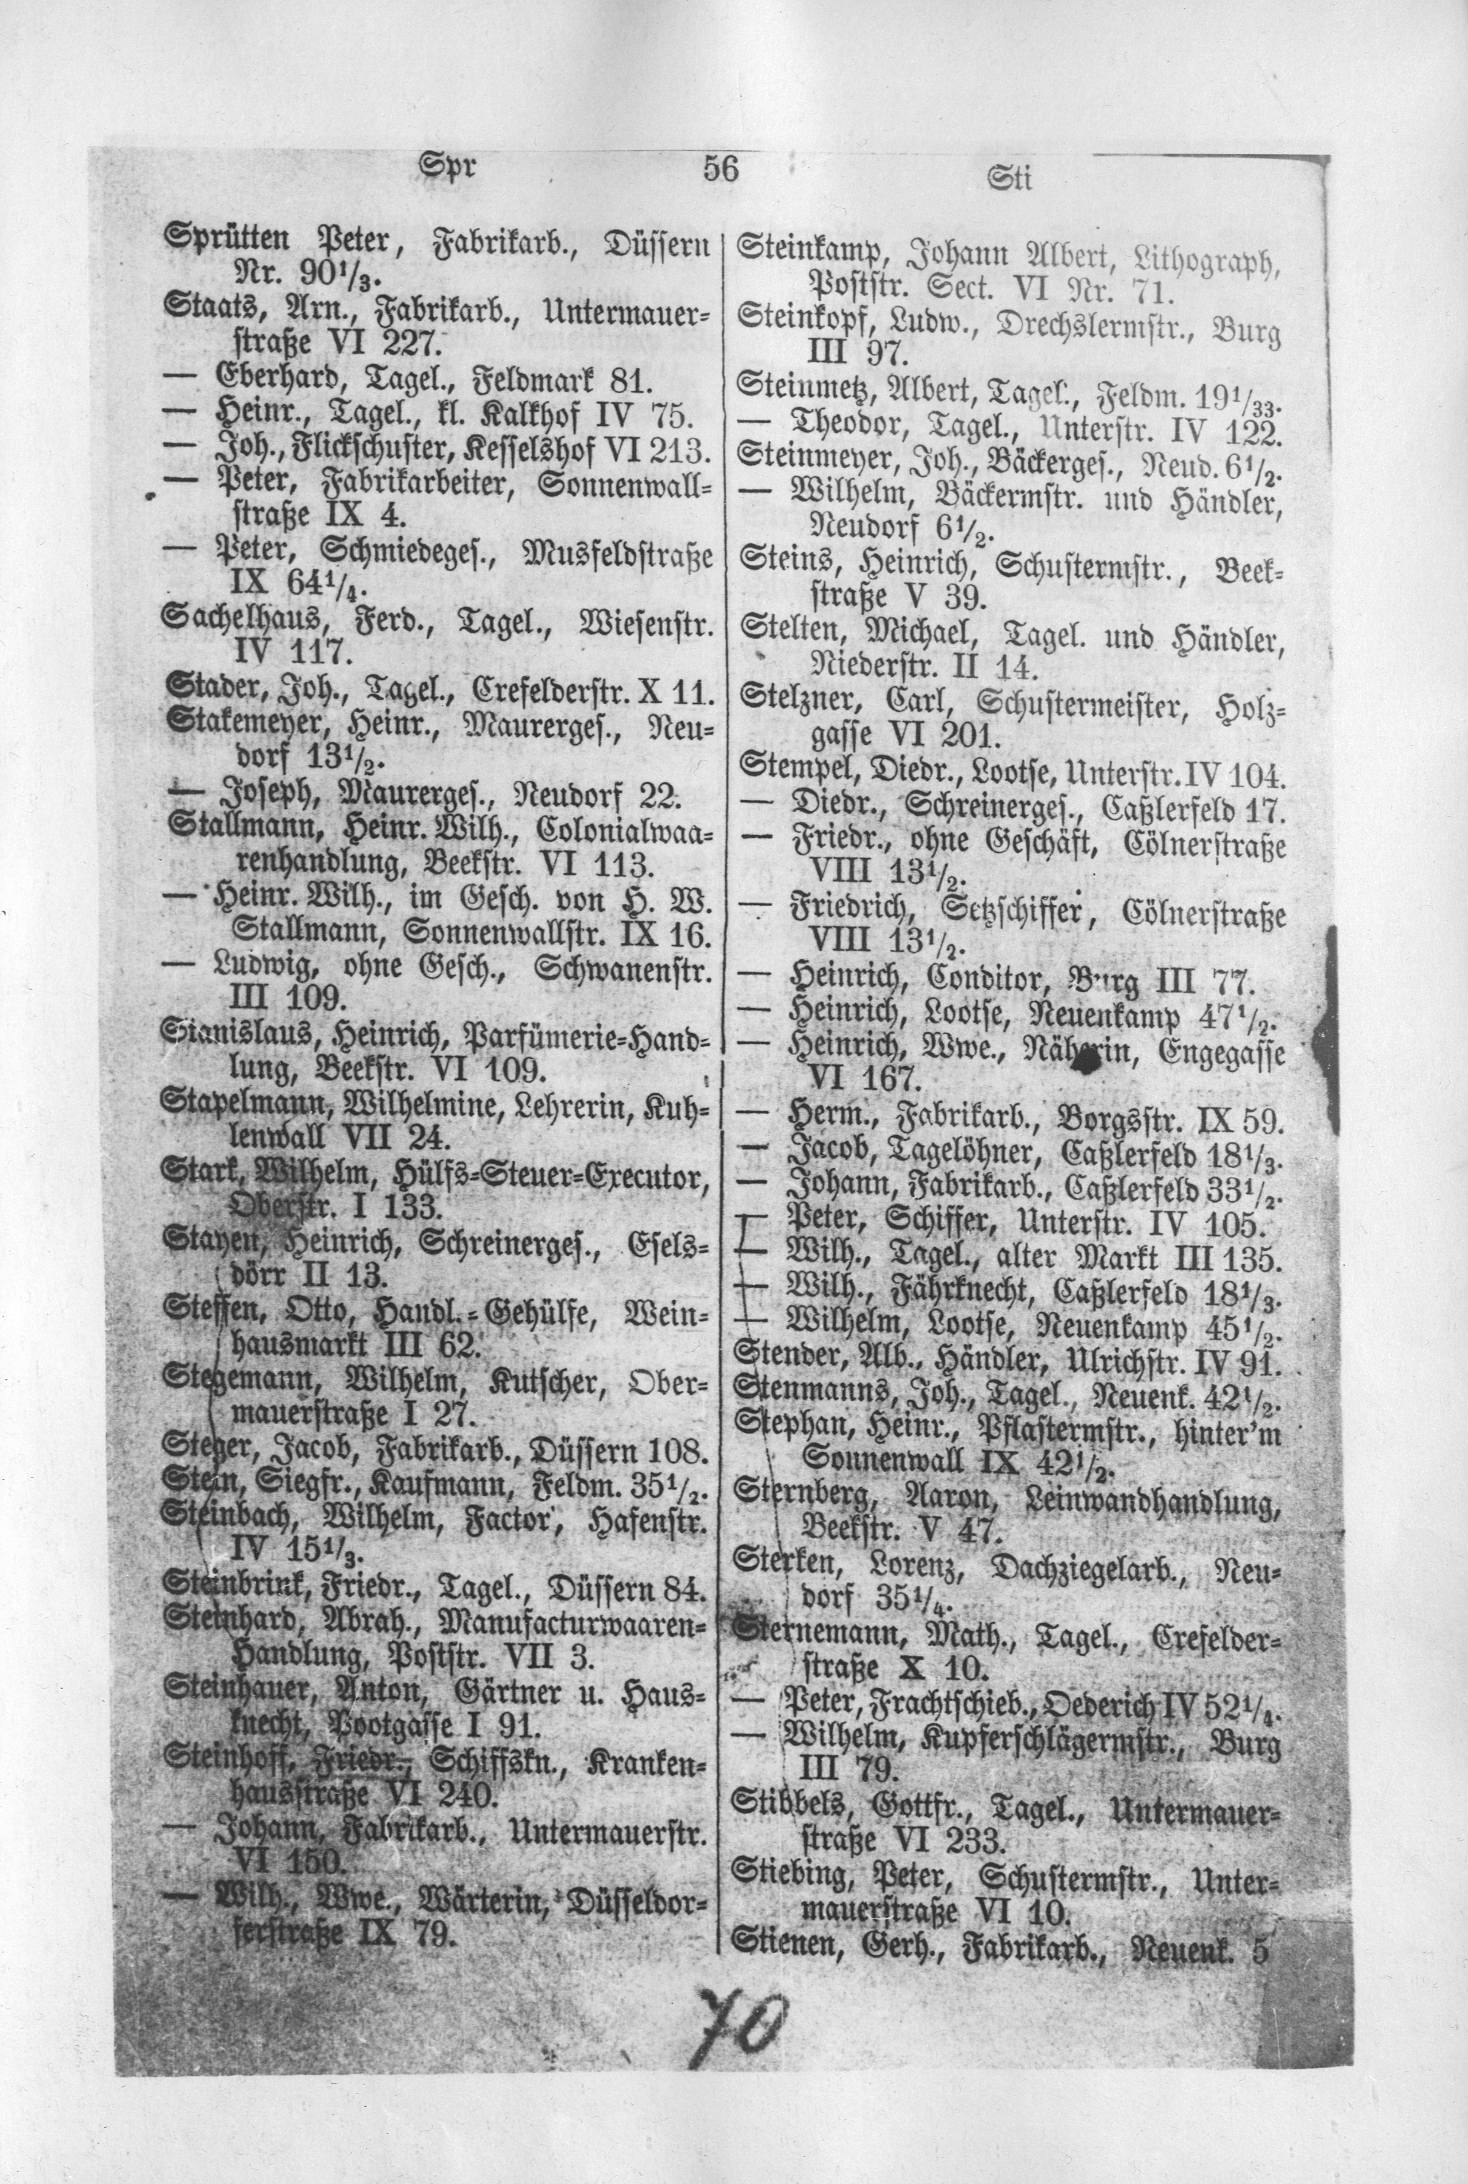 Spr 56 Sti
Sprütten Peter, Fabrikarb., Düssern
Nr. 90 1/3.
Staats, Arn., Fabrikarb., Untermauer-
straße VI 227.
— Eberhard, Tagel., Feldmark 81.
— Heinr., Tagel., kl. Kalkhof IV 75.
— Joh., Flickschuster, Kesselshof VI 213.
— Peter, Fabrikarbeiter, Sonnenwall-
straße IX 4.
— Peter, Schmiedeges., Musfeldstraße
IX 64 1/4.
Sachelhaus, Ferd., Tagel., Wiesenstr.
IV 117.
Stader, Joh., Tagel., Crefelderstr. X 11.
Stakemeyer, Heinr., Maurerges., Neu-
dorf 13 1/2.
— Joseph, Maurerges., Neudorf 22.
Stallmann, Heinr. Wilh., Colonialwaa-
renhandlung, Beekstr. VI 113.
— Heinr. Wilh., im Gesch. von H. W.
Stallmann, Sonnenwallstr. IX 16.
— Ludwig, ohne Gesch., Schwanenstr.
III 109.
Stanislaus, Heinrich, Parfümerie-Hand-
lung, Beekstr. VI 109.
Stapelmann, Wilhelmine, Lehrerin, Kuh-
lenwall VII 24.
Stark, Wilhelm, Hülfs-Steuer-Executor,
Oberstr. I 133.
Stayen, Heinrich, Schreinerges., Esels-
dörr II 13.
Steffen, Otto, Handl.-Gehülfe, Wein-
hausmarkt III 62.
Stegemann, Wilhelm, Kutscher, Ober-
mauerstraße I 27.
Steger, Jacob, Fabrikarb., Düssern 108.
Stein, Siegfr., Kaufmann, Feldm. 35 1/2.
Steinbach, Wilhelm, Factor, Hafenstr.
IV 15 1/3.
Steinbrink, Friedr., Tagel., Düssern 84.
Steinhard, Abrah., Manufacturwaaren-
Handlung, Poststr. VII 3.
Steinhauer, Anton, Gärtner u. Haus-
knecht, Pootgasse I 91.
Steinhoff, Friedr., Schiffskn., Kranken-
hausstraße VI 240.
— Johann, Fabrikarb., Untermauerstr.
VI 150.
— Wilh., Wwe., Wärterin, Düsseldor-
ferstraße IX 79.
Steinkamp, Johann Albert, Lithograph,
Poststr. Sect. VI Nr. 71.
Steinkopf, Ludw., Drechslermstr., Burg
III 97.
Steinmetz, Albert, Tagel., Feldm. 19 1/33.
— Theodor, Tagel., Unterstr. IV 122.
Steinmeyer, Joh., Bäckerges., Neud. 6 1/2.
— Wilhelm, Bäckermstr. und Händler,
Neudorf 6 1/2.
Steins, Heinrich, Schustermstr., Beek-
straße V 39.
Stelten, Michael, Tagel. und Händler,
Niederstr. II 14.
Stelzner, Carl, Schustermeister, Holz-
gasse VI 201.
Stempel, Diedr., Lootse, Unterstr. IV 104.
— Diedr., Schreinerges., Caßlerfeld 17.
— Friedr., ohne Geschäft, Cölnerstraße
VIII 13 1/2.
— Friedrich, Setzschiffer, Cölnerstraße
VIII 13 1/2.
— Heinrich, Conditor, Burg III 77.
— Heinrich, Lootse, Neuenkamp 47 1/2.
— Heinrich, Wwe., Näherin, Engegasse
VI 167.
— Herm., Fabrikarb., Borgsstr. IX 59.
— Jacob, Tagelöhner, Caßlerfeld 18 1/3.
— Johann, Fabrikarb., Caßlerfeld 33 1/2.
— Peter, Schiffer, Unterstr. IV 105.
— Wilh., Tagel., alter Markt III 135.
— Wilh., Fährknecht, Caßlerfeld 18 1/3.
— Wilhelm, Lootse, Neuenkamp 45 1/2.
Stender, Alb., Händler, Ulrichstr. IV 91.
Stenmanns, Joh., Tagel., Neuenk. 42 1/2.
Stephan, Heinr., Pflastermstr., hinter'm
Sonnenwall IX 42 1/2.
Sternberg, Aaron, Leinwandhandlung,
Beekstr. V 47.
Sterken, Lorenz, Dachziegelarb., Neu-
dorf 35 1/4.
Sternemann, Math., Tagel., Crefelder-
straße X 10.
— Peter, Frachtschieb., Oederich IV 52 1/4.
— Wilhelm, Kupferschlägermstr., Burg
III 79.
Stibbels, Gottfr., Tagel., Untermauer-
straße VI 233.
Stiebing, Peter, Schustermstr., Unter-
mauerstraße VI 10.
Stienen, Gerh., Fabrikarb., Neuenk. 5
70